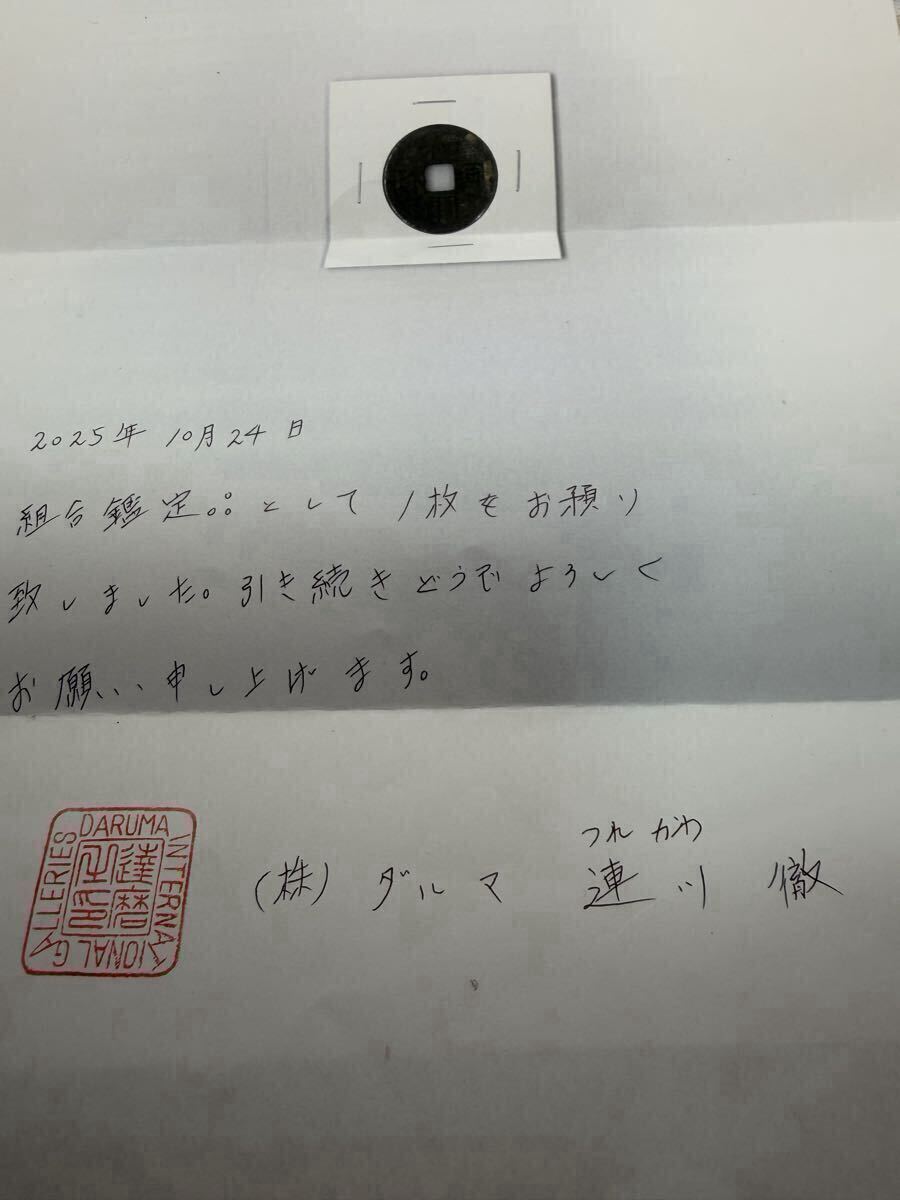 2025年 10月24日
組合鑑定品として1枚をお預り
致しました。引き続きどうぞよろしく
お願い申し上げます。
DARUMA INTERNATIONAL GALLERIES
達磨之印
つれ かわ
(株) ダルマ 連川 徹